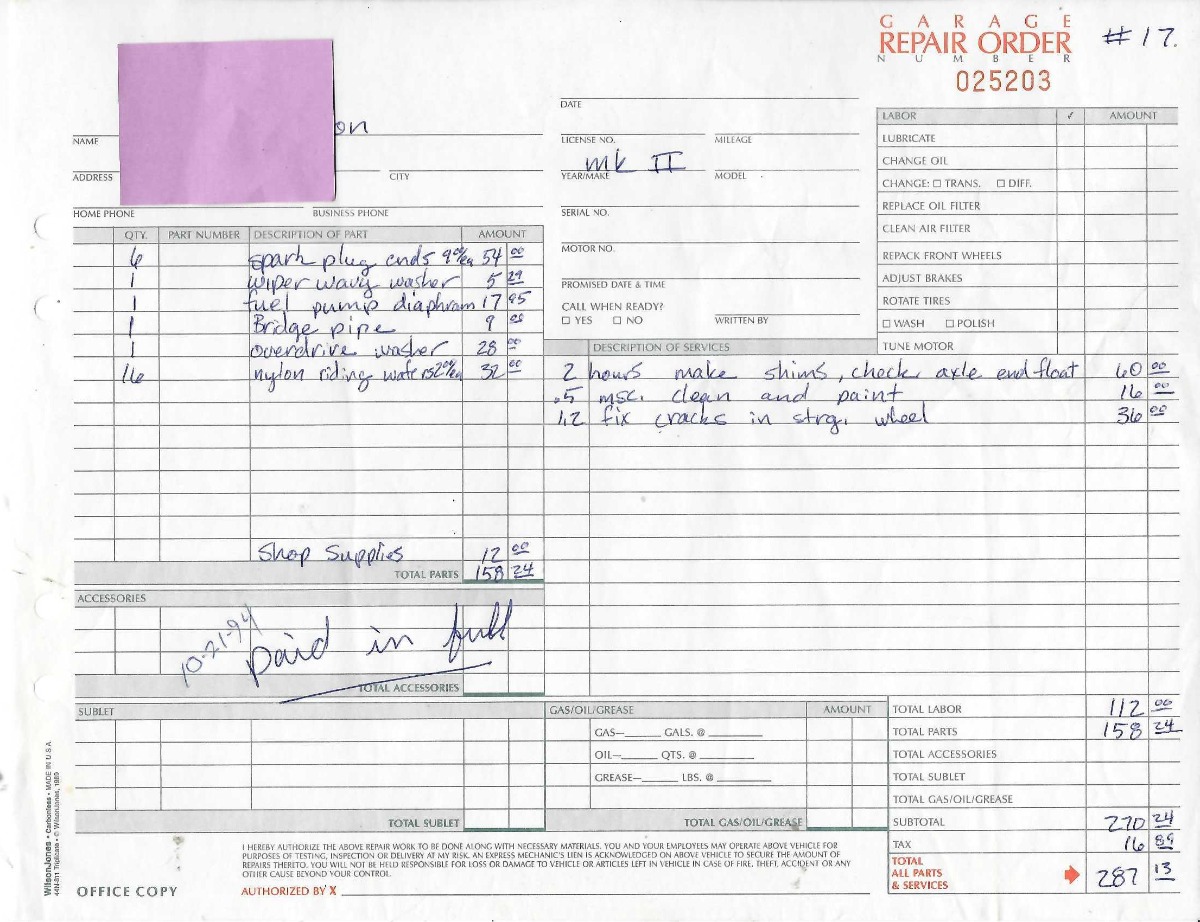 GARAGE
REPAIR ORDER
NUMBER
025203
#17.
on
NAME
ADDRESS
CITY
HOME PHONE
BUSINESS PHONE
DATE
LICENSE NO.
MILEAGE
mk II
YEAR/MAKE
MODEL
SERIAL NO.
MOTOR NO.
PROMISED DATE & TIME
CALL WHEN READY?
☐ YES ☐ NO
WRITTEN BY
LABOR ✓ AMOUNT
LUBRICATE
CHANGE OIL
CHANGE: ☐ TRANS. ☐ DIFF.
REPLACE OIL FILTER
CLEAN AIR FILTER
REPACK FRONT WHEELS
ADJUST BRAKES
ROTATE TIRES
☐ WASH ☐ POLISH
TUNE MOTOR
QTY. PART NUMBER DESCRIPTION OF PART AMOUNT
6 spark plug ends 9 00/ea 54 00
1 wiper wavy washer 5 29
1 fuel pump diaphram 17 95
1 Bridge pipe 9 00
1 overdrive washer 28 00
16 nylon riding wafers 2 00/ea 32 00
Shop Supplies 12 00
TOTAL PARTS 158 24
DESCRIPTION OF SERVICES
2 hours make shims, check axle end float 60 00
.5 msc. clean and paint 16 00
1.2 fix cracks in strg. wheel 36 00
ACCESSORIES
10-21-94
paid in full
TOTAL ACCESSORIES
SUBLET
TOTAL SUBLET
GAS/OIL/GREASE AMOUNT
GAS—______ GALS. @ ________
OIL—______ QTS. @ ________
GREASE—______ LBS. @ ________
TOTAL GAS/OIL/GREASE
TOTAL LABOR 112 00
TOTAL PARTS 158 24
TOTAL ACCESSORIES
TOTAL SUBLET
TOTAL GAS/OIL/GREASE
SUBTOTAL 270 24
TAX 16 89
TOTAL
ALL PARTS
& SERVICES 287 13
I HEREBY AUTHORIZE THE ABOVE REPAIR WORK TO BE DONE ALONG WITH NECESSARY MATERIALS. YOU AND YOUR EMPLOYEES MAY OPERATE ABOVE VEHICLE FOR
PURPOSES OF TESTING, INSPECTION OR DELIVERY AT MY RISK. AN EXPRESS MECHANIC'S LIEN IS ACKNOWLEDGED ON ABOVE VEHICLE TO SECURE THE AMOUNT OF
REPAIRS THERETO. YOU WILL NOT BE HELD RESPONSIBLE FOR LOSS OR DAMAGE TO VEHICLE OR ARTICLES LEFT IN VEHICLE IN CASE OF FIRE, THEFT, ACCIDENT OR ANY
OTHER CAUSE BEYOND YOUR CONTROL.
OFFICE COPY
AUTHORIZED BY X
WilsonJones • Carbonless • MADE IN U.S.A.
44N-811 Triplicate • © WilsonJones, 1989